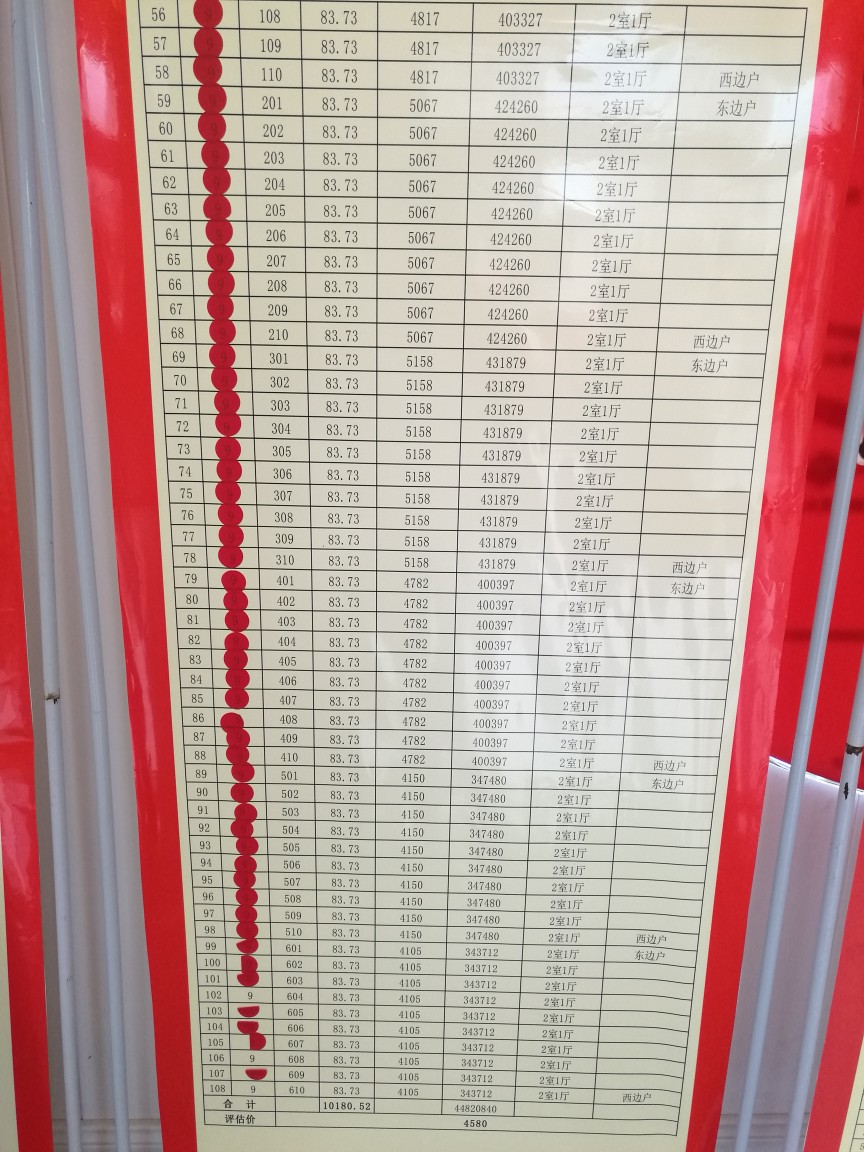 56 9 108 83.73 4817 403327 2室1厅
57 9 109 83.73 4817 403327 2室1厅
58 9 110 83.73 4817 403327 2室1厅 西边户
59 9 201 83.73 5067 424260 2室1厅 东边户
60 9 202 83.73 5067 424260 2室1厅
61 9 203 83.73 5067 424260 2室1厅
62 9 204 83.73 5067 424260 2室1厅
63 9 205 83.73 5067 424260 2室1厅
64 9 206 83.73 5067 424260 2室1厅
65 9 207 83.73 5067 424260 2室1厅
66 9 208 83.73 5067 424260 2室1厅
67 9 209 83.73 5067 424260 2室1厅
68 9 210 83.73 5067 424260 2室1厅 西边户
69 9 301 83.73 5158 431879 2室1厅 东边户
70 9 302 83.73 5158 431879 2室1厅
71 9 303 83.73 5158 431879 2室1厅
72 9 304 83.73 5158 431879 2室1厅
73 9 305 83.73 5158 431879 2室1厅
74 9 306 83.73 5158 431879 2室1厅
75 9 307 83.73 5158 431879 2室1厅
76 9 308 83.73 5158 431879 2室1厅
77 9 309 83.73 5158 431879 2室1厅
78 9 310 83.73 5158 431879 2室1厅 西边户
79 9 401 83.73 4782 400397 2室1厅 东边户
80 9 402 83.73 4782 400397 2室1厅
81 9 403 83.73 4782 400397 2室1厅
82 9 404 83.73 4782 400397 2室1厅
83 9 405 83.73 4782 400397 2室1厅
84 9 406 83.73 4782 400397 2室1厅
85 9 407 83.73 4782 400397 2室1厅
86 408 83.73 4782 400397 2室1厅
87 409 83.73 4782 400397 2室1厅
88 410 83.73 4782 400397 2室1厅 西边户
89 501 83.73 4150 347480 2室1厅 东边户
90 502 83.73 4150 347480 2室1厅
91 503 83.73 4150 347480 2室1厅
92 504 83.73 4150 347480 2室1厅
93 505 83.73 4150 347480 2室1厅
94 506 83.73 4150 347480 2室1厅
95 507 83.73 4150 347480 2室1厅
96 508 83.73 4150 347480 2室1厅
97 509 83.73 4150 347480 2室1厅
98 510 83.73 4150 347480 2室1厅 西边户
99 601 83.73 4105 343712 2室1厅 东边户
100 602 83.73 4105 343712 2室1厅
101 603 83.73 4105 343712 2室1厅
102 9 604 83.73 4105 343712 2室1厅
103 605 83.73 4105 343712 2室1厅
104 606 83.73 4105 343712 2室1厅
105 607 83.73 4105 343712 2室1厅
106 9 608 83.73 4105 343712 2室1厅
107 609 83.73 4105 343712 2室1厅
108 9 610 83.73 4105 343712 2室1厅 西边户
合 计 10180.52 44820840
评估价 4580